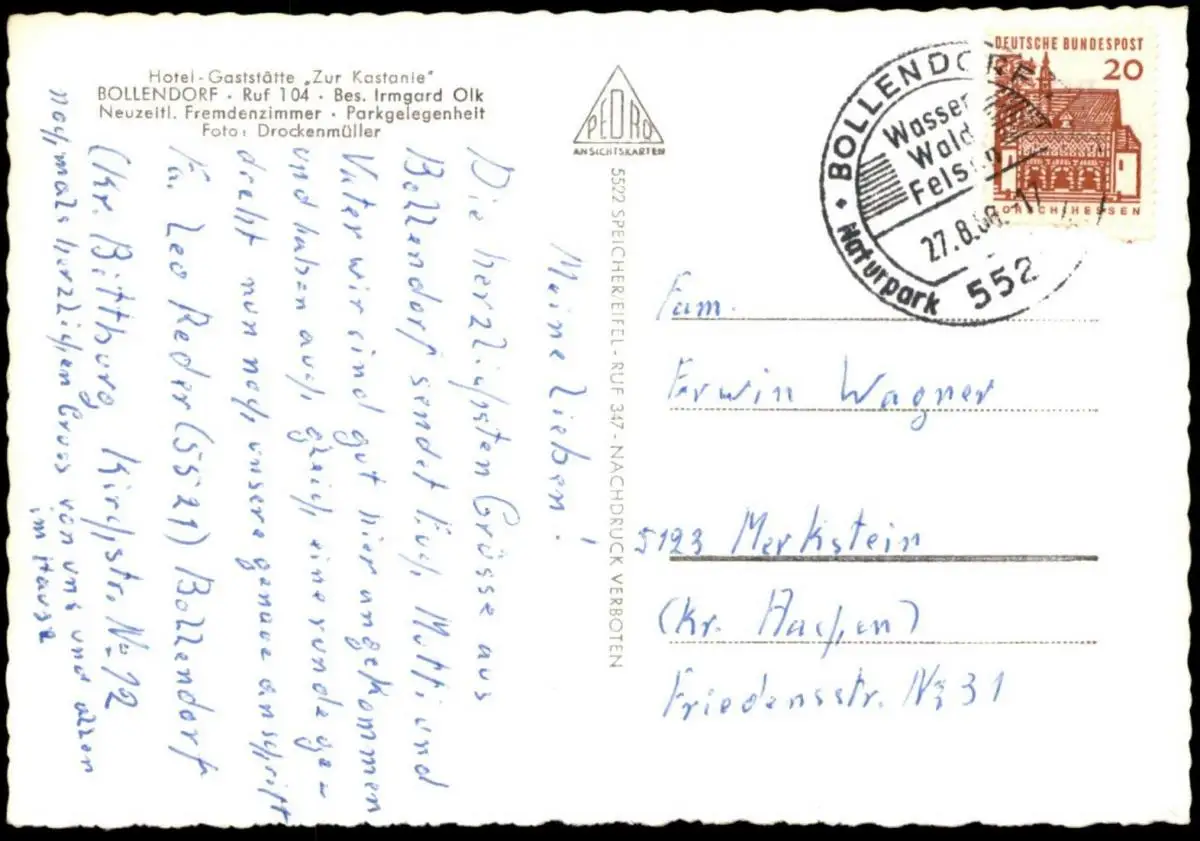 Hotel-Gaststätte „Zur Kastanie"
BOLLENDORF · Ruf 104 · Bes. Irmgard Olk
Neuzeitl. Fremdenzimmer · Parkgelegenheit
Foto: Drockenmüller
PEDRO
ANSICHTSKARTEN
5522 SPEICHER/EIFEL - RUF 347 - NACHDRUCK VERBOTEN
DEUTSCHE BUNDESPOST
20
LORSCH/HESSEN
BOLLENDORF
Wasser
Wald
Felsen
27.8.66.-17
Naturpark
552
Meine Lieben!
Die herzlichsten Grüsse aus
Bollendorf sendet Euch Mutti und
Vater wir sind gut hier angekommen
und haben auch gleich eine runde ge-
dreht nun noch unsere genaue anschrift
Fa. Leo Reder (5521) Bollendorf
(Kr. Bittburg Kirchstr. No 12
nochmals herzlichen Gruss von uns und allen
im Hause
Fam.
Erwin Wagner
5123 Merkstein
(Kr. Aachen)
Friedensstr. No 31